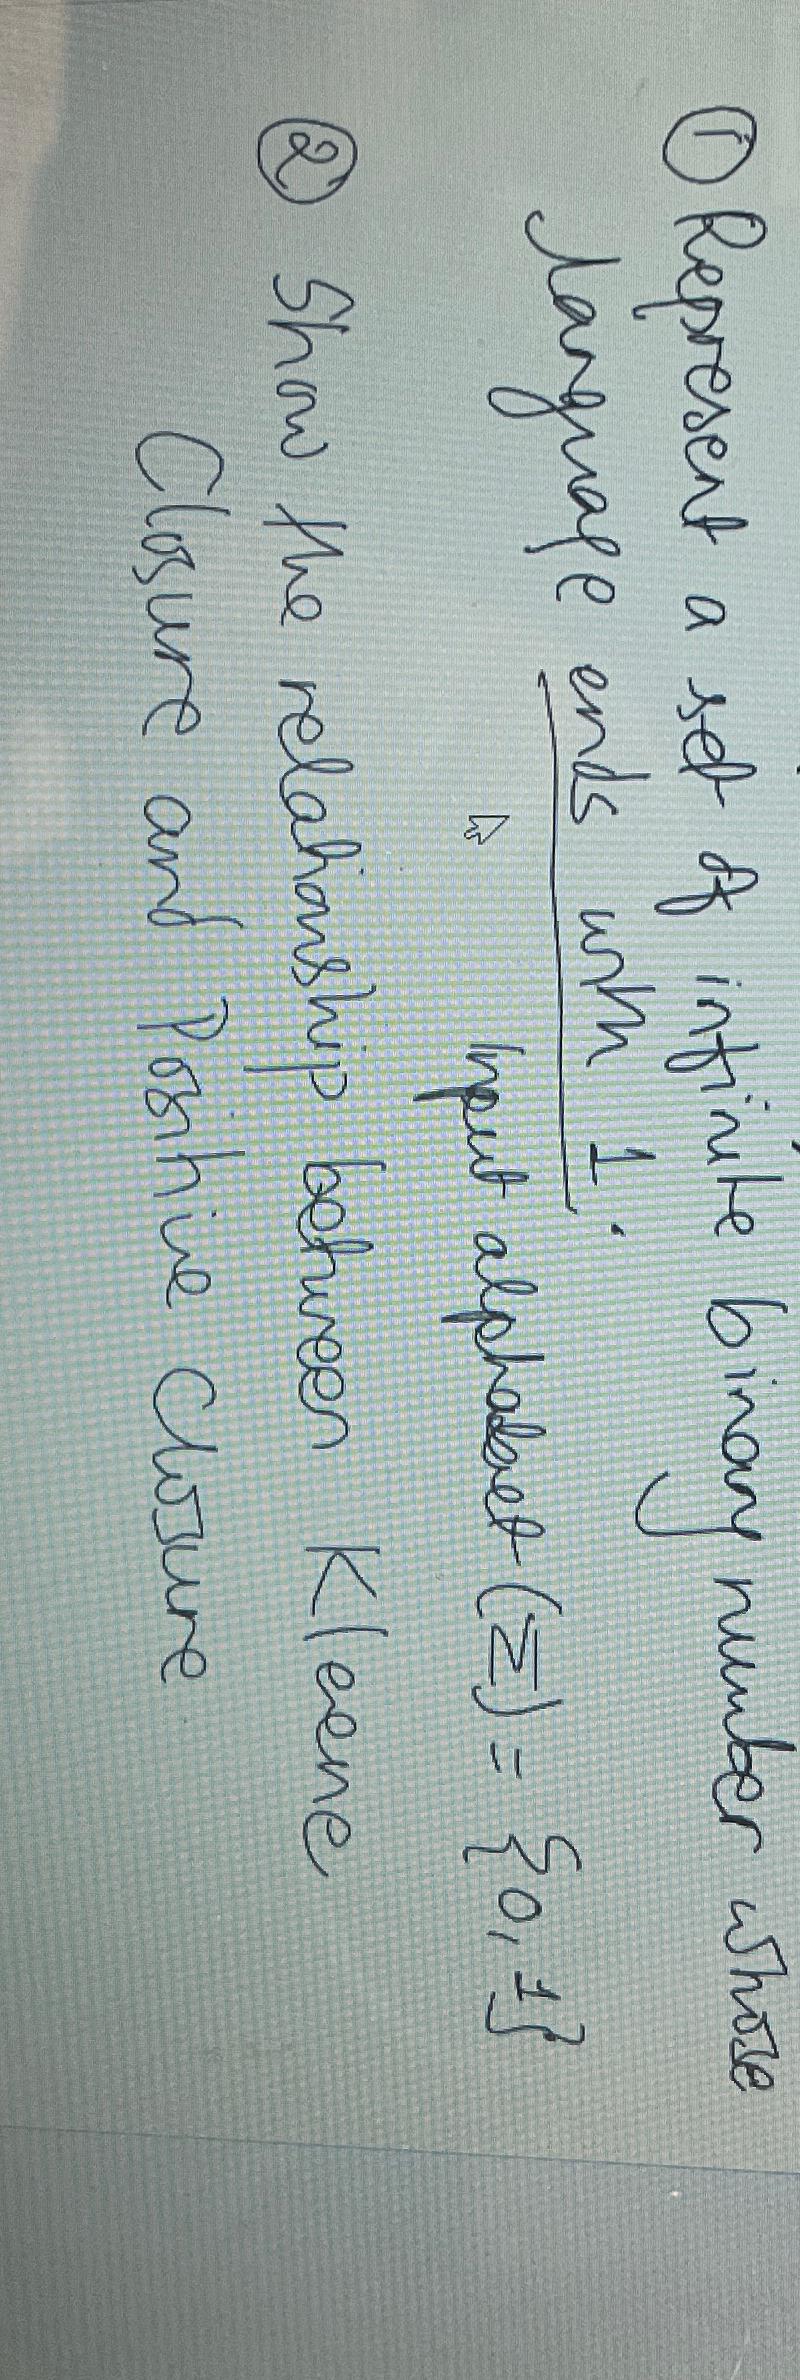 ① Represent a set of infinite binary number whose
language ends with 1.
Input alphabet (Σ) = {0, 1}
② Show the relationship between Kleene
Closure and Positive Closure